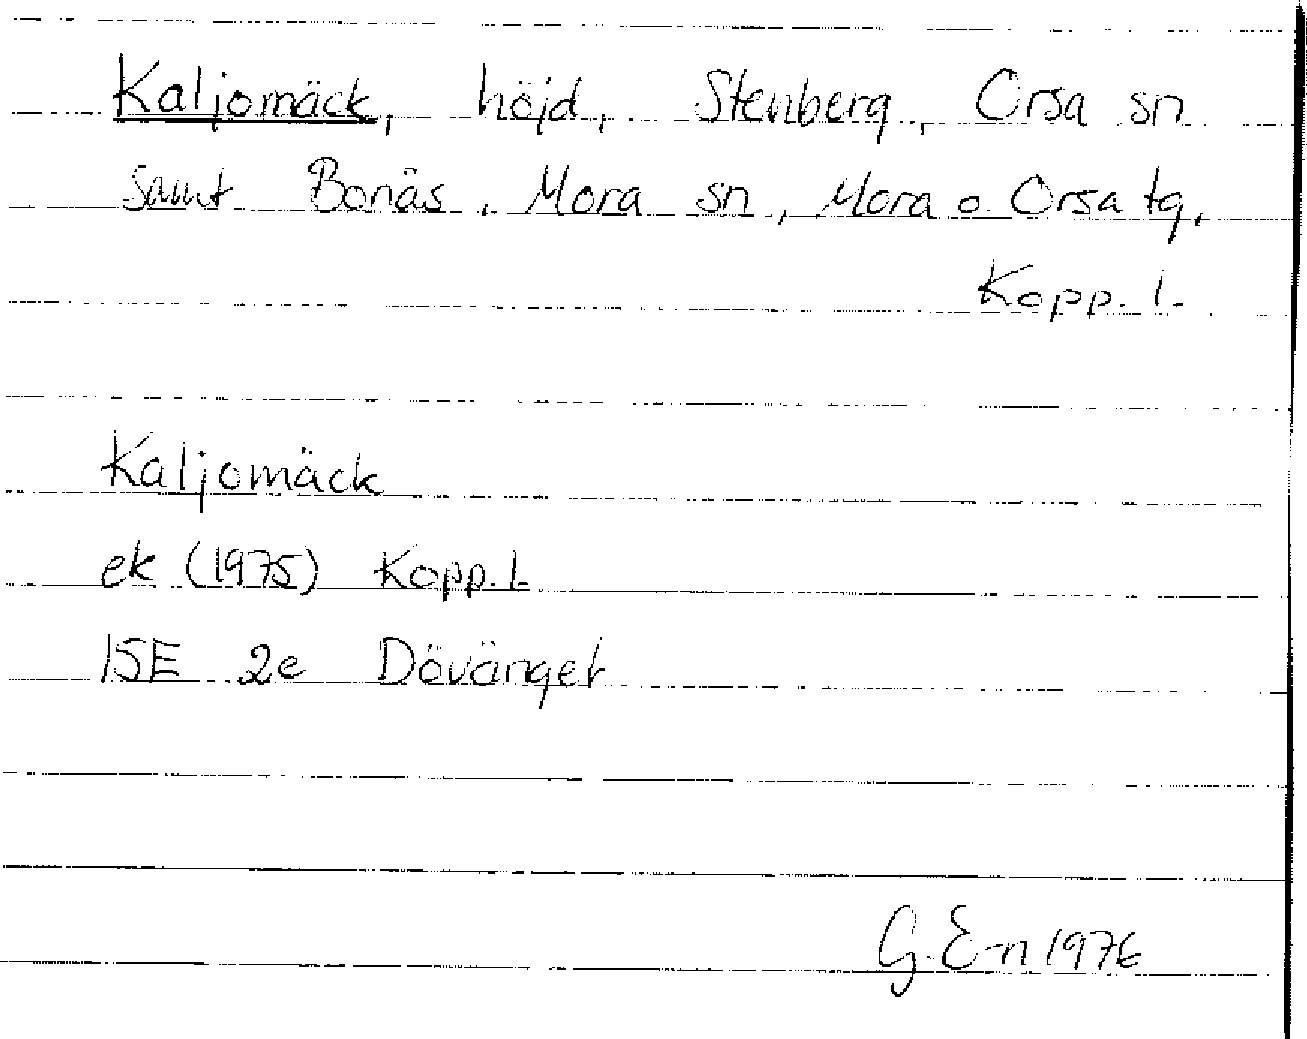 Kaljomäck, höjd, Stenberg, Orsa sn
samt Bonäs, Mora sn, Mora o Orsa tg,
Kopp. l.
Kaljomäck
ek (1975) Kopp. l.
15E 2e Dövänget
G. E-n 1976